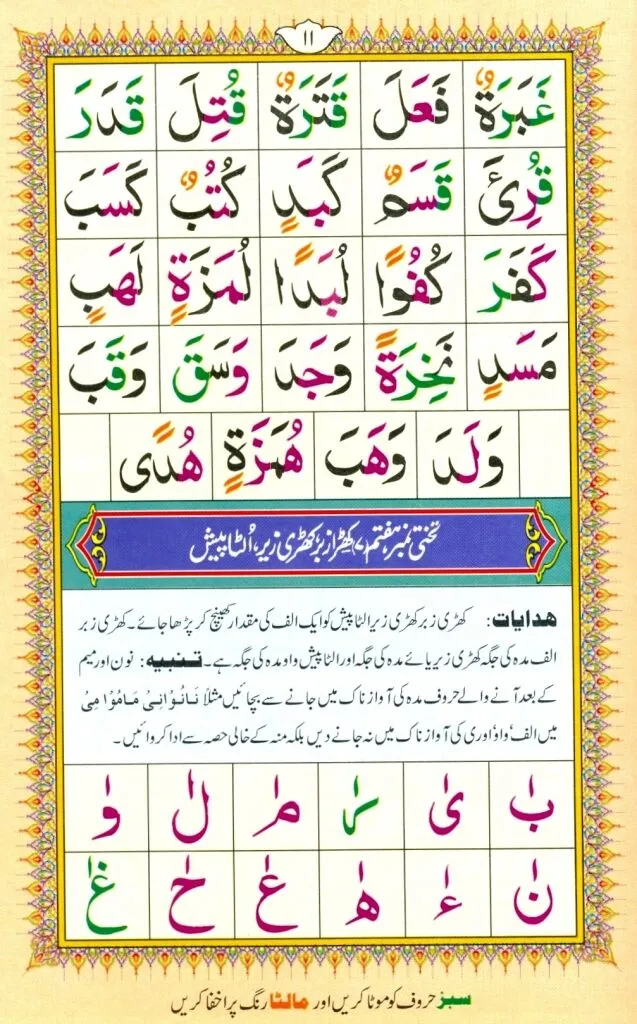 ۱۱
غَبَرَةٌ فَعَلَ قَتَرَةٌ قُتِلَ قَدَرَ
قُرِئَ قَسَمٌ كَبَدٍ كُتُبٌ كَسَبَ
كَفَرَ كُفُوًا لُبَدًا لُمَزَةٍ لَهَبٍ
مَسَدٍ نَخِرَةً وَجَدَ وَسَقَ وَقَبَ
وَلَدَ وَهَبَ هُمَزَةٍ هُدًى
تختی نمبر ہفتم ۷، کھڑا زبر، کھڑی زیر، اُلٹا پیش
ھدایات: کھڑی زبر کھڑی زیر الٹا پیش کو ایک الف کی مقدار کھینچ کر پڑھا جائے۔ کھڑی زبر
الف مدہ کی جگہ کھڑی زیر یائے مدہ کی جگہ اور الٹا پیش واو مدہ کی جگہ ہے۔ تنبیہ: نون اور میم
کے بعد آنے والے حروف مدہ کی آواز ناک میں جانے سے بچائیں مثلاً نَانُوْانِیْ مَامُوْا مِیْ
میں الف، واؤ اور ی کی آواز ناک میں نہ جانے دیں بلکہ منہ کے خالی حصہ سے ادا کروائیں۔
بٰ یٰ رٰ مٰ لٰ وٰ
نٰ ءٰ هٰ عٰ حٰ غٰ
سبز حروف کو موٹا کریں اور مالٹا رنگ پر اخفا کریں